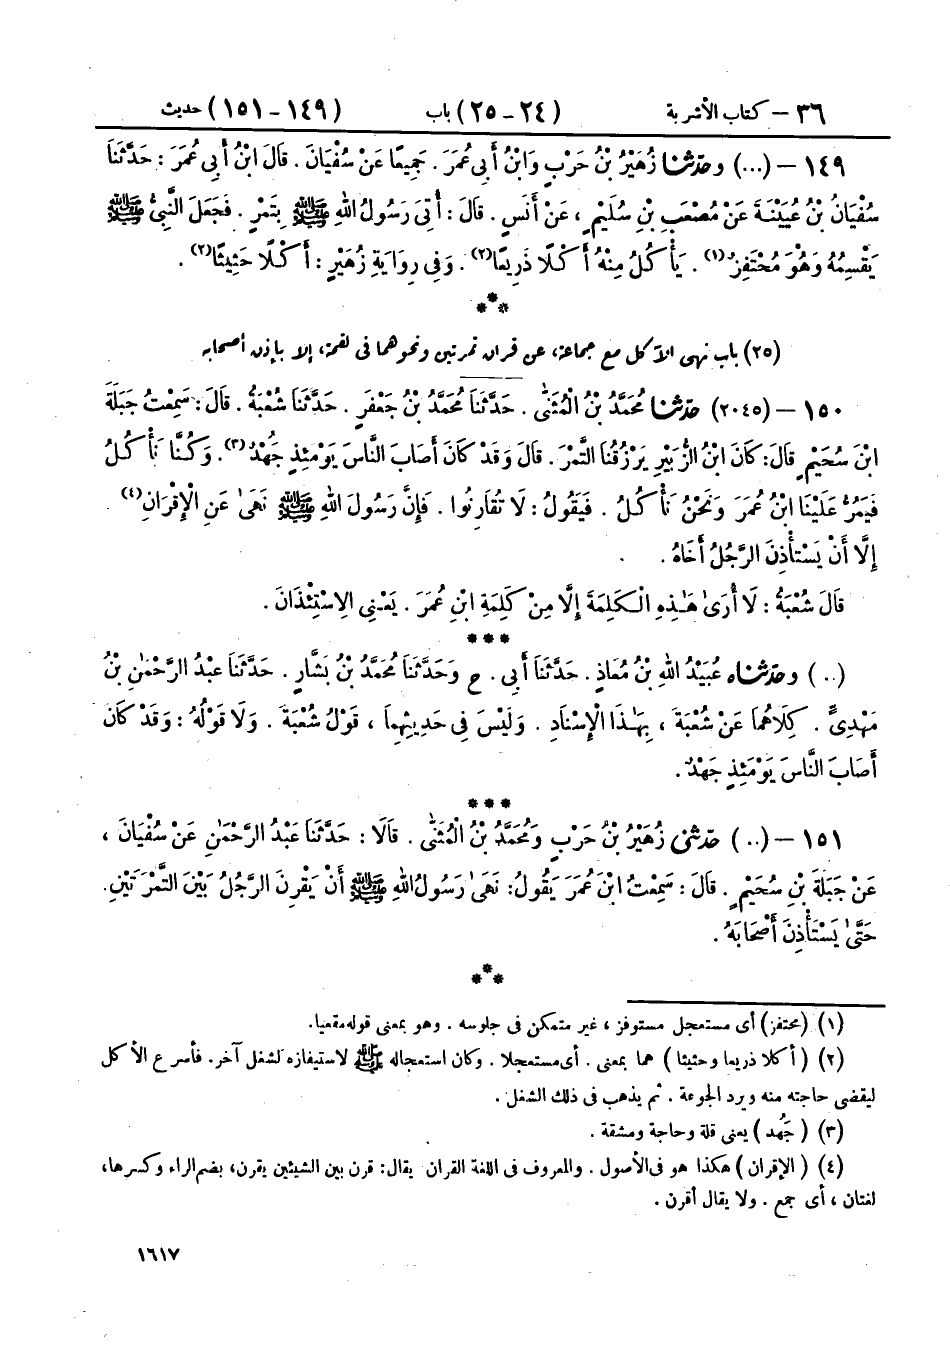 ٣٦ – كتاب الأشربة (٢٤ - ٢٥) باب (١٤٩ - ١٥١) حديث
١٤٩ – (...) وحَدَّثَنَا زُهَيْرُ بْنُ حَرْبٍ وَابْنُ أَبِي عُمَرَ . جَمِيعًا عَنْ سُفْيَانَ . قَالَ ابْنُ أَبِي عُمَرَ : حَدَّثَنَا
سُفْيَانُ بْنُ عُيَيْنَةَ عَنْ مُصْعَبِ بْنِ سُلَيْمٍ ، عَنْ أَنَسٍ . قَالَ : أُتِيَ رَسُولُ اللهِ ﷺ بِتَمْرٍ . فَجَعَلَ النَّبِيُّ ﷺ
يَقْسِمُهُ وَهُوَ مُحْتَفِزٌ(١) . يَأْكُلُ مِنْهُ أَكْلًا ذَرِيعًا(٢) . وَفِي رِوَايَةِ زُهَيْرٍ : أَكْلًا حَثِيثًا(٢) .
***
(٢٥) باب نهى الآكل مع جماعة، عن قران تمرتين ونحوهما فى لقمة، إلا بإذن أصحابه
١٥٠ – (٢٠٤٥) حَدَّثَنَا مُحَمَّدُ بْنُ الْمُثَنَّىٰ . حَدَّثَنَا مُحَمَّدُ بْنُ جَعْفَرٍ . حَدَّثَنَا شُعْبَةُ . قَالَ : سَمِعْتُ جَبَلَةَ
ابْنَ سُحَيْمٍ قَالَ : كَانَ ابْنُ الزُّبَيْرِ يَرْزُقُنَا التَّمْرَ . قَالَ وَقَدْ كَانَ أَصَابَ النَّاسَ يَوْمَئِذٍ جَهْدٌ(٣) . وَكُنَّا نَأْكُلُ
فَيَمُرُّ عَلَيْنَا ابْنُ عُمَرَ وَنَحْنُ نَأْكُلُ . فَيَقُولُ : لَا تُقَارِنُوا . فَإِنَّ رَسُولَ اللهِ ﷺ نَهَىٰ عَنِ الْإِقْرَانِ(٤) .
إِلَّا أَنْ يَسْتَأْذِنَ الرَّجُلُ أَخَاهُ .
قَالَ شُعْبَةُ : لَا أُرَىٰ هَٰذِهِ الْكَلِمَةَ إِلَّا مِنْ كَلِمَةِ ابْنِ عُمَرَ . يَعْنِي الِاسْتِئْذَانَ .
***
(..) وحَدَّثَنَاه عُبَيْدُ اللهِ بْنُ مُعَاذٍ . حَدَّثَنَا أَبِي . ح وَحَدَّثَنَا مُحَمَّدُ بْنُ بَشَّارٍ . حَدَّثَنَا عَبْدُ الرَّحْمَٰنِ بْنُ
مَهْدِيٍّ . كِلَاهُمَا عَنْ شُعْبَةَ ، بِهَٰذَا الْإِسْنَادِ . وَلَيْسَ فِي حَدِيثِهِمَا ، قَوْلُ شُعْبَةَ . وَلَا قَوْلُهُ : وَقَدْ كَانَ
أَصَابَ النَّاسَ يَوْمَئِذٍ جَهْدٌ .
***
١٥١ – (..) حَدَّثَنِي زُهَيْرُ بْنُ حَرْبٍ وَمُحَمَّدُ بْنُ الْمُثَنَّىٰ . قَالَا : حَدَّثَنَا عَبْدُ الرَّحْمَٰنِ عَنْ سُفْيَانَ ،
عَنْ جَبَلَةَ بْنِ سُحَيْمٍ . قَالَ : سَمِعْتُ ابْنَ عُمَرَ يَقُولُ : نَهَىٰ رَسُولُ اللهِ ﷺ أَنْ يَقْرِنَ الرَّجُلُ بَيْنَ التَّمْرَتَيْنِ .
حَتَّىٰ يَسْتَأْذِنَ أَصْحَابَهُ .
***
(١) (محتفز) أى مستعجل مستوفز ، غير متمكن فى جلوسه . وهو بمعنى قوله مقعيا.
(٢) (أكلا ذريعا وحثيثا) هما بمعنى . أى مستعجلا . وكان استعجاله ﷺ لاستيفازه لشغل آخر . فأسرع الأكل
ليقضى حاجته منه ويرد الجوعة . ثم يذهب فى ذلك الشغل .
(٣) (جَهد) يعنى قلة وحاجة ومشقة .
(٤) (الإقران) هكذا هو فى الأصول . والمعروف فى اللغة القران يقال: قرن بين الشيئين يقرن، بضم الراء وكسرها،
لغتان ، أى جمع . ولا يقال أقرن .
١٦١٧